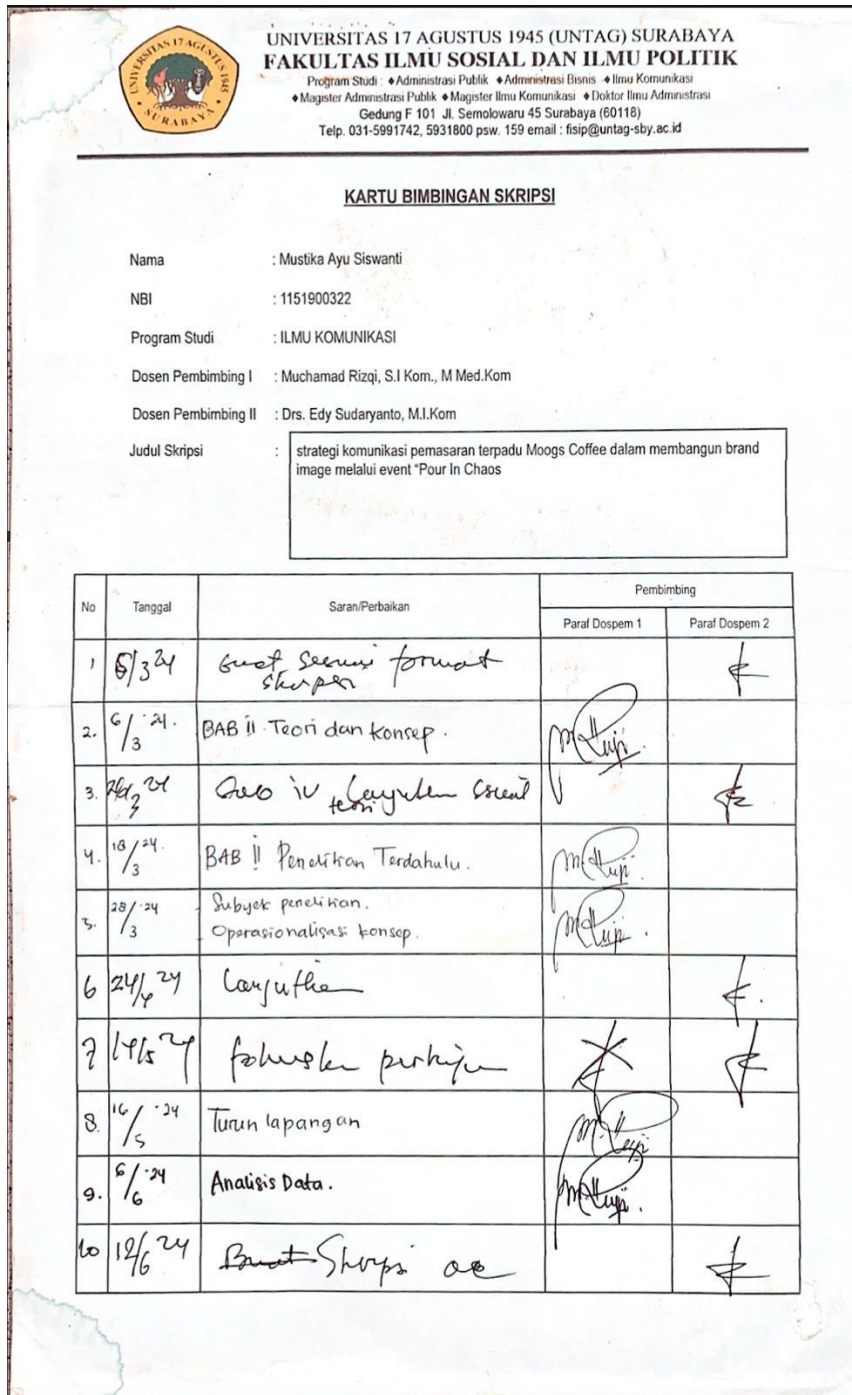 UNIVERSITAS 17 AGUSTUS 1945 (UNTAG) SURABAYA
FAKULTAS ILMU SOSIAL DAN ILMU POLITIK
Program Studi : ♦Administrasi Publik ♦Administrasi Bisnis ♦Ilmu Komunikasi
♦Magister Administrasi Publik ♦Magister Ilmu Komunikasi ♦Doktor Ilmu Administrasi
Gedung F 101 Jl. Semolowaru 45 Surabaya (60118)
Telp. 031-5991742, 5931800 psw. 159 email : fisip@untag-sby.ac.id
UNIVERSITAS 17 AGUSTUS 1945
SURABAYA
KARTU BIMBINGAN SKRIPSI
Nama : Mustika Ayu Siswanti
NBI : 1151900322
Program Studi : ILMU KOMUNIKASI
Dosen Pembimbing I : Muchamad Rizqi, S.I Kom., M Med.Kom
Dosen Pembimbing II : Drs. Edy Sudaryanto, M.I.Kom
Judul Skripsi : strategi komunikasi pemasaran terpadu Moogs Coffee dalam membangun brand
image melalui event "Pour In Chaos
No Tanggal Saran/Perbaikan Pembimbing
Paraf Dospem 1 Paraf Dospem 2
1 5/3 24 sesuai format
2. 6/3 ·24. BAB II Teori dan konsep.
3. 24 iv teori
4. 18/3 ·24. BAB II Penelitian Terdahulu.
5. 28/3 ·24 Subyek penelitian.
Operasionalisasi konsep.
6 24/4 24 Lanjutkan
7 14/5 24
8. 16/5 ·24 Turun lapangan
9. 6/6 ·24 Analisis Data.
10 12/6 24 Skripsi